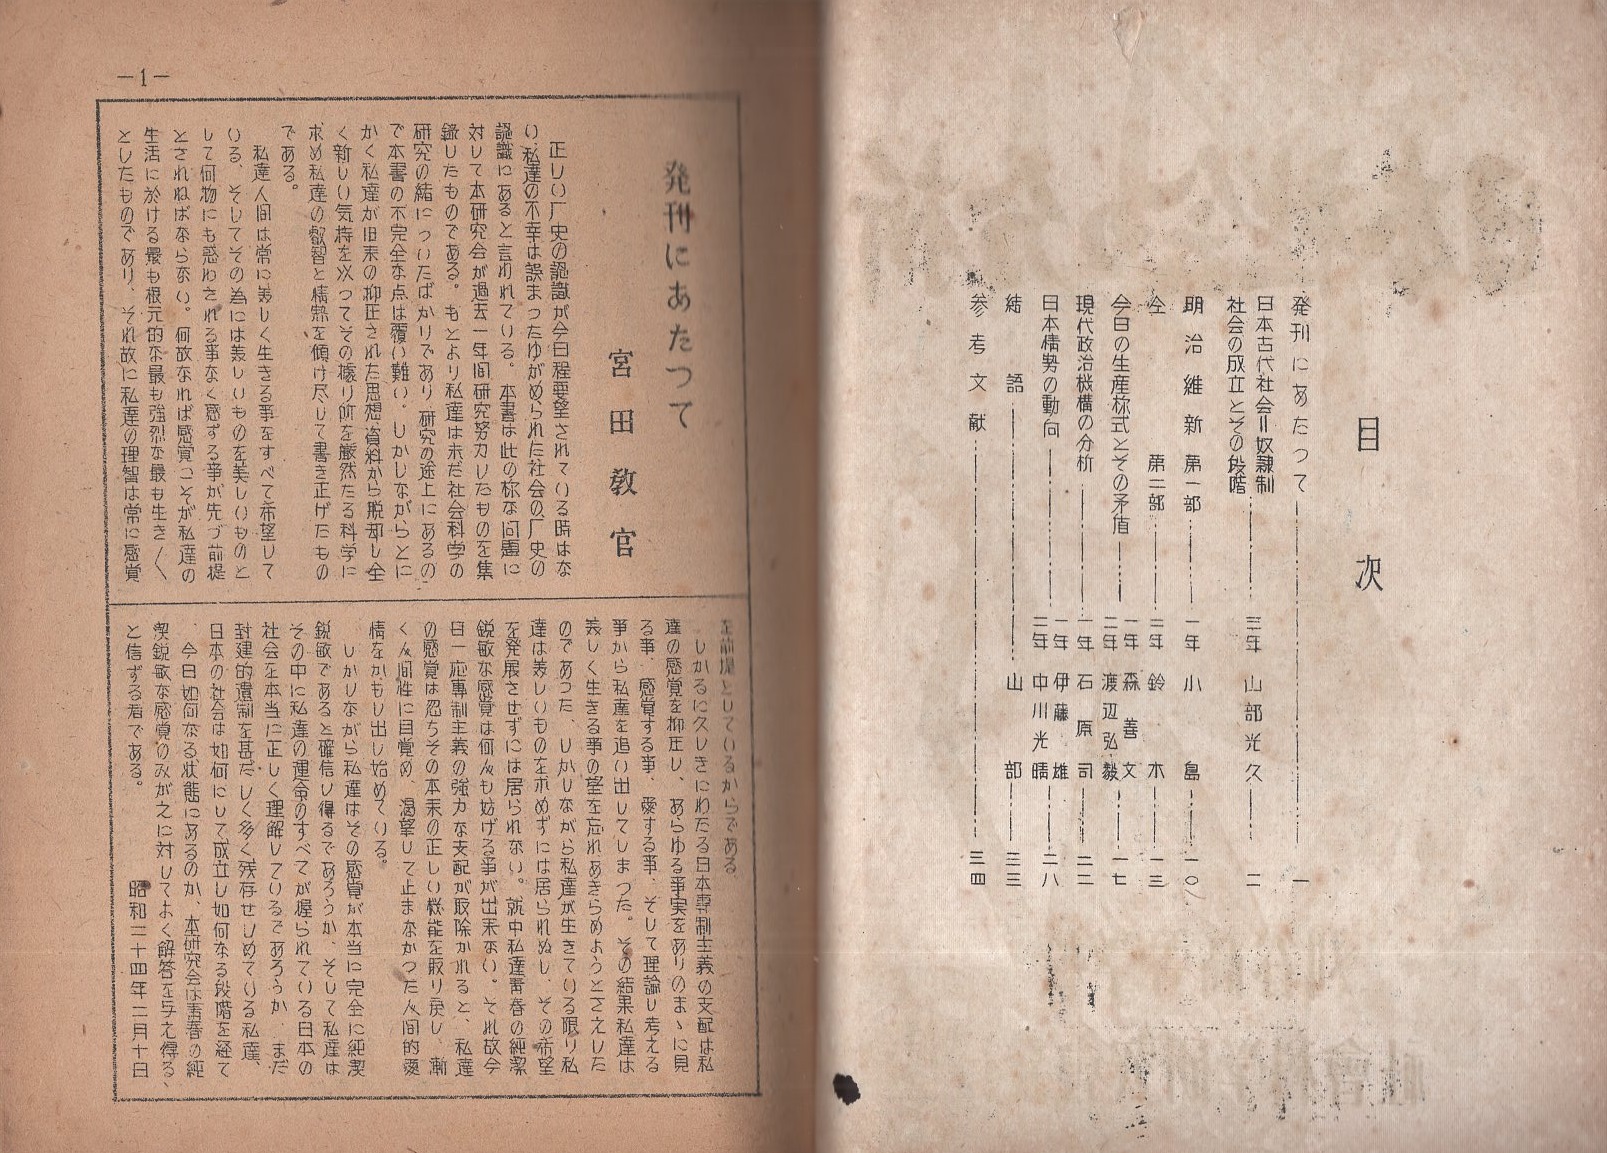 目次
発刊にあたつて 一
日本古代社会=奴隷制
社会の成立とその段階 三年 山部光久 二
明治維新 第一部 一年 小島 一〇
仝 第二部 二年 鈴木 一三
今日の生産様式とその矛盾 一年 森善文 二年 渡辺弘毅 一七
現代政治機構の分析 一年 石原司 二二
日本情勢の動向 一年 伊藤雄 二年 中川光晴 二八
結語 山部 三三
参考文献 三四
社會科学研究
—1—
発刊にあたつて
宮田教官
正しい厂史の認識が今日程要望されている時はな
い、私達の不幸は誤まつたゆがめられた社会の厂史の
認識にあると言われている。本書は此の様な問題に
対して本研究会が過去一年間研究努力したものを集
録したものである。もとより私達は未だ社会科学の
研究の緒についたばかりであり 研究の途上にあるの
で本書の不完全な点は覆い難い。しかしながらとに
かく私達が旧来の抑圧された思想、資料から脱却し全
く新しい気持を以つてその據り所を厳然たる科学に
求め私達の叡智と情熱を傾け尽して書き上げたもの
である。
私達人間は常に美しく生きる事をすべて希望して
いる、そしてその為には美しいものを美しいものと
して何物にも惑わされる事なく感ずる事が先づ前提
とされねばならない。何故なれば感覚こそが私達の
生活に於ける最も根元的な最も強烈な最も生き〱
としたものであり、それ故に私達の理智は常に感覚
を前提としているからである。
しかるに久しきにわたる日本専制主義の支配は私
達の感覚を抑圧し、あらゆる事実をありのまゝに見
る事、感覚する事、愛する事、そして理論し考える
事から私達を追い出してしまつた。その結果私達は
美しく生きる事の望を忘れあきらめようとさえした
のであつた、しかしながら私達が生きている限り私
達は美しいものを求めずには居られぬし、その希望
を発展させずには居られない。就中私達青春の純潔
鋭敏な感覚は何人も妨げる事が出来ない。それ故今
日一応専制主義の強力な支配が取除かれると、私達
の感覚は忽ちその本来の正しい機能を取り戻し、漸
く人間性に目覚め、渇望して止まなかつた人間的愛
情をかもし出し始めている。
しかしながら私達はその感覚が本当に完全に純潔
鋭敏であると確信し得るであろうか、そして私達は
その中に私達の運命のすべてが握られている日本の
社会を本当に正しく理解しているであろうか、まだ
封建的遺制を甚だしく多く残存せしめている私達、
日本の社会は如何にして成立し如何なる段階を経て
今日如何なる状態にあるのか、本研究会は青春の純
潔鋭敏な感覚のみが之に対してよく解答を与え得る、
と信ずる者である。
昭和二十四年二月十日